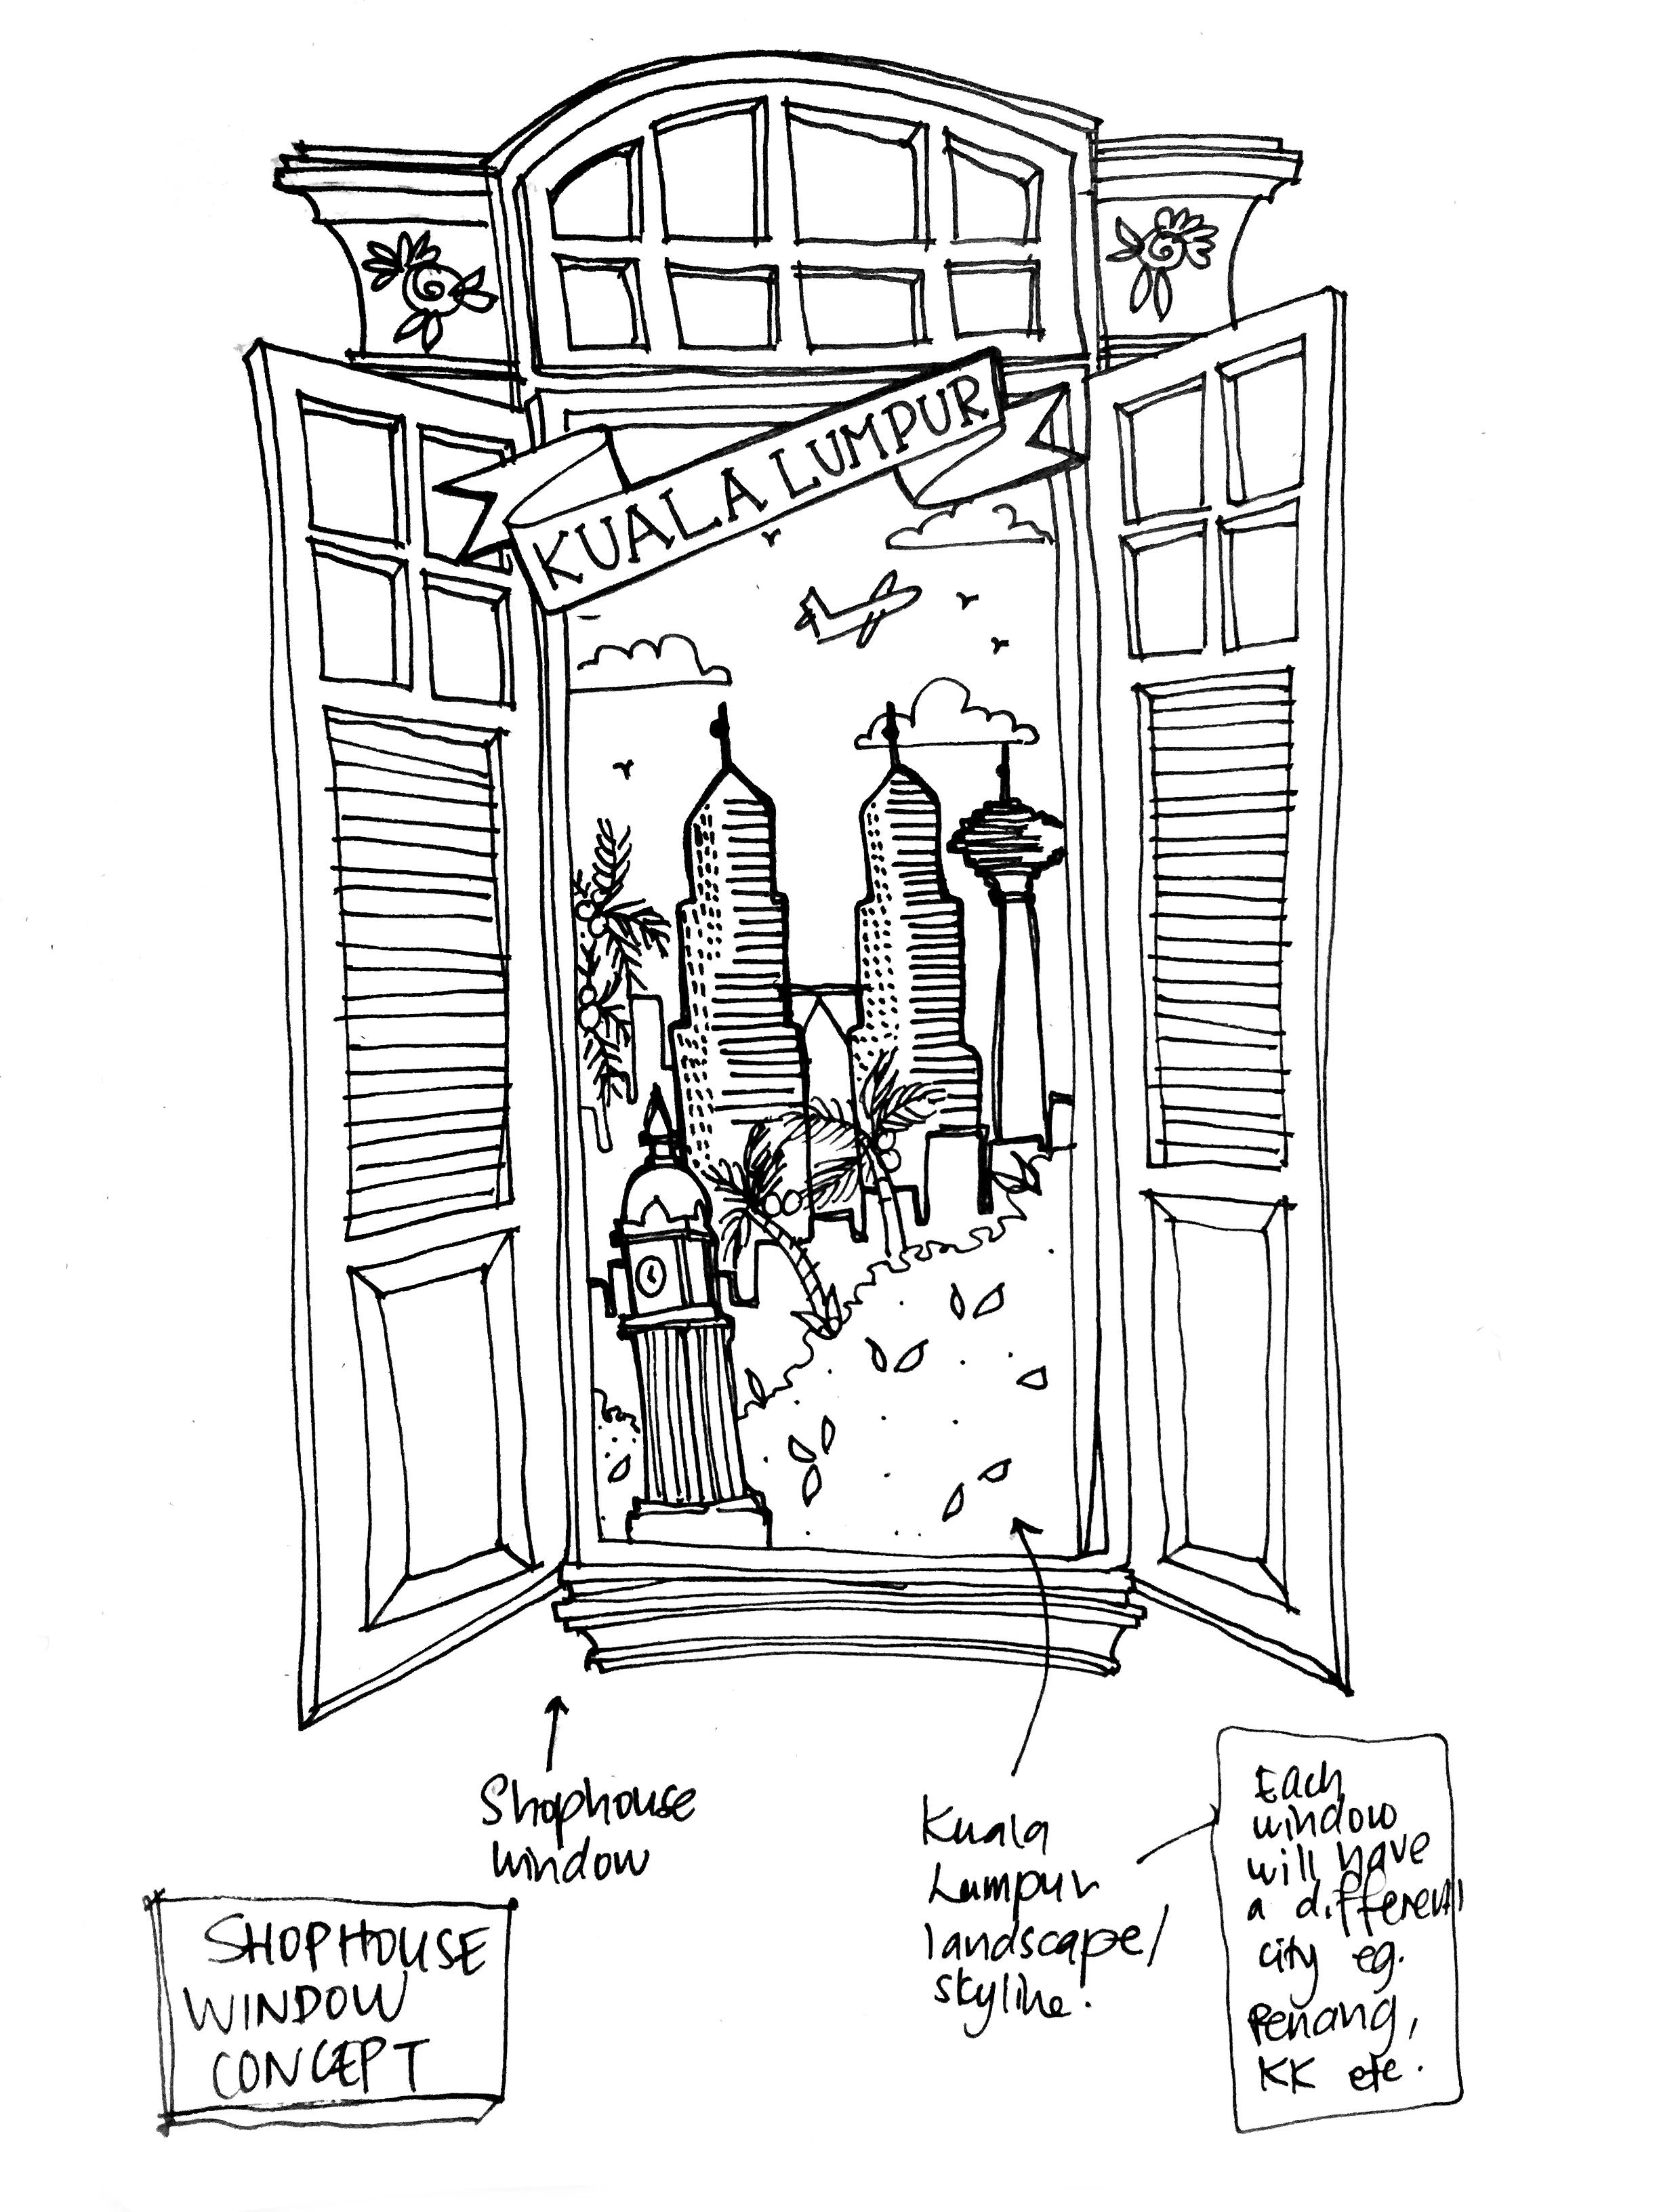 KUALA LUMPUR
Shophouse
window
Kuala
Lumpur
landscape/
skyline.
Each
window
will have
a different
city eg.
Penang,
KK etc.
SHOPHOUSE
WINDOW
CONCEPT